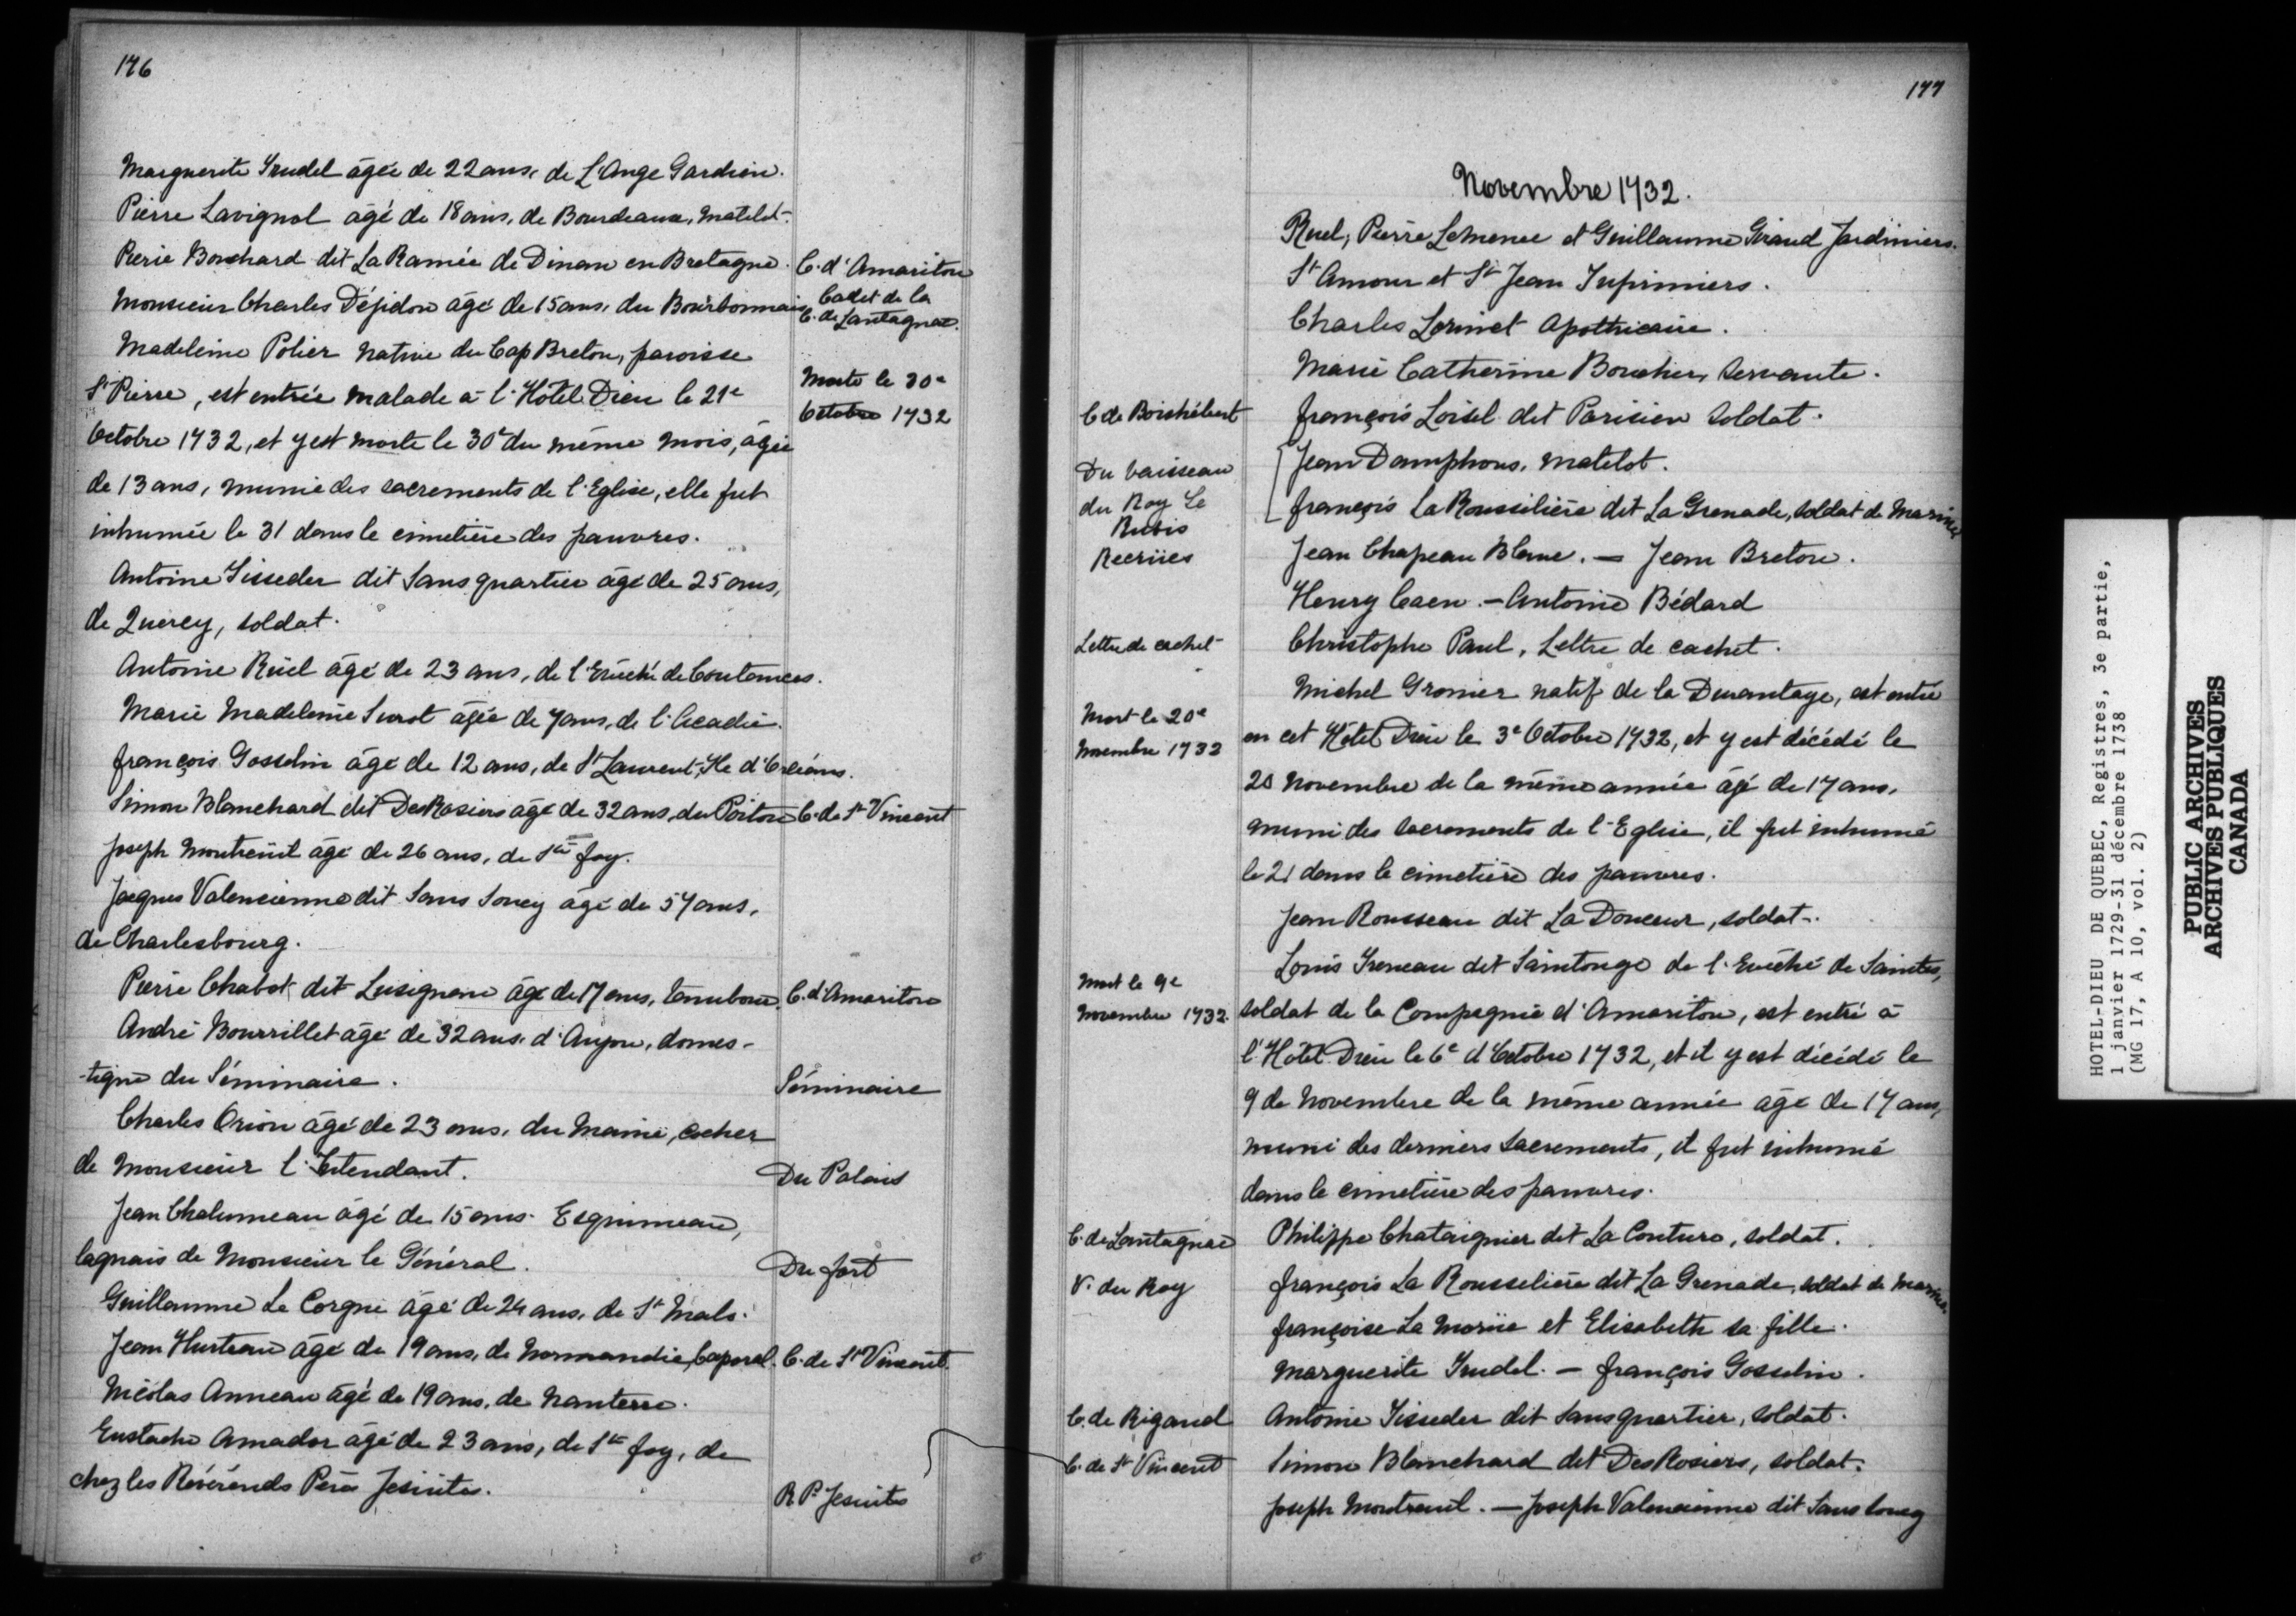 176
Marguerite Trudel âgée de 22 ans, de L'Ange Gardien.
Pierre Lavignol âgé de 18 ans, de Bourdeaux, Matelot.
Pierre Bouchard dit La Ramée de Dinan en Bretagne. C. d'Amariton
Monsieur Charles Déjidon âgé de 15 ans, du Bourbonnais Cadet de la
C. de Lantagnac.
Madeleine Potier native du Cap Breton, paroisse
St Pierre, est entrée malade à l'Hôtel Dieu le 21e Morte le 30e
Octobre 1732
Octobre 1732, et y est morte le 30e du même mois, âgée
de 13 ans, munie des sacrements de l'Eglise, elle fut
inhumée le 31 dans le cimetière des pauvres.
Antoine Tisseder dit Sans quartier âgé de 25 ans,
de Quercy, soldat.
Antoine Rüel âgé de 23 ans, de l'Evêché de Coutances.
Marie Madeleine Surot âgée de 7 ans, de l'Acadie.
françois Gosselin âgé de 12 ans, de St Laurent, Ile d'Orléans.
Simon Blanchard dit DesRosiers âgé de 32 ans, du Poitou C. de St Vincent
Joseph Montreüil âgé de 26 ans, de Ste foy.
Jacques Valencienne dit Sans Soucy âgé de 57 ans,
de Charlesbourg.
Pierre Chabot dit Lusignan âgé de 17 ans, tambour. C. d'Amariton
André Bourrillet âgé de 32 ans, d'Anjou, domes-
-tique du Séminaire. Séminaire
Charles Orion âgé de 23 ans, du Maine, cocher
de Monsieur l'Intendant. Du Palais
Jean Chalumeau âgé de 15 ans. Esquimeau,
laquais de Monsieur le Général. Du fort
Guillaume Le Corgne âgé de 24 ans, de St Malo.
Jean Hurteau âgé de 19 ans, de Normandie, Caporal. C. de St Vincent.
Nicolas Anneau âgé de 19 ans, de Nanterre.
Eustache Amador âgé de 23 ans, de Ste foy, de
chez les Révérends Pères Jesuites. R Ps Jesuites
177
Novembre 1732.
Ruel, Pierre Lemenec et Guillaume Giraud Jardiniers.
St Amour et St Jean Infirmiers.
Charles Lorinet Apothicaire.
Marie Catherine Boucher, Servante.
C. de Boishébert françois Loisel dit Parisien Soldat.
Du Vaisseau Jean Damphous, Matelot.
du Roy Le françois La Roussilière dit La Grenade, soldat de Marine
Rubis
Recrües Jean Chapeau Blanc. — Jean Breton.
Henry Caen. — Antoine Bédard
Lettre de cachet Christophe Paul, Lettre de cachet.
Michel Gronier natif de la Durantaye, est entré
Mort le 20e
Novembre 1732 en cet Hôtel Dieu le 3e Octobre 1732, et y est décédé le
20 Novembre de la même année âgé de 17 ans,
muni des sacrements de l'Eglise, il fut inhumé
le 21 dans le cimetière des pauvres.
Jean Rousseau dit La Douceur, soldat.
Louis Treneau dit Saintonge de l'Evêché de Saintes,
Mort le 9e
Novembre 1732. soldat de la Compagnie d'Amariton, est entré à
l'Hôtel Dieu le 6e d'Octobre 1732, et il y est décédé le
9 de Novembre de la même année âgé de 17 ans,
muni des derniers sacrements, il fut inhumé
dans le cimetière des pauvres.
C. de Lantagnac Philippe Chataignier dit La Couture, soldat.
V. du Roy françois La Rousselière dit La Grenade, soldat de Marine.
françoise La Morüe et Elisabeth sa fille.
Marguerite Trudel. — françois Gosselin.
C. de Rigaud Antoine Tisseder dit Sansquartier, soldat.
C. de St Vincent Simon Blanchard dit DesRosiers, soldat.
Joseph Montreuil. — Joseph Valencienne dit Sans Soucy
HOTEL-DIEU DE QUEBEC, Registres, 3e partie,
1 janvier 1729-31 décembre 1738
(MG 17, A 10, vol. 2)
PUBLIC ARCHIVES
ARCHIVES PUBLIQUES
CANADA